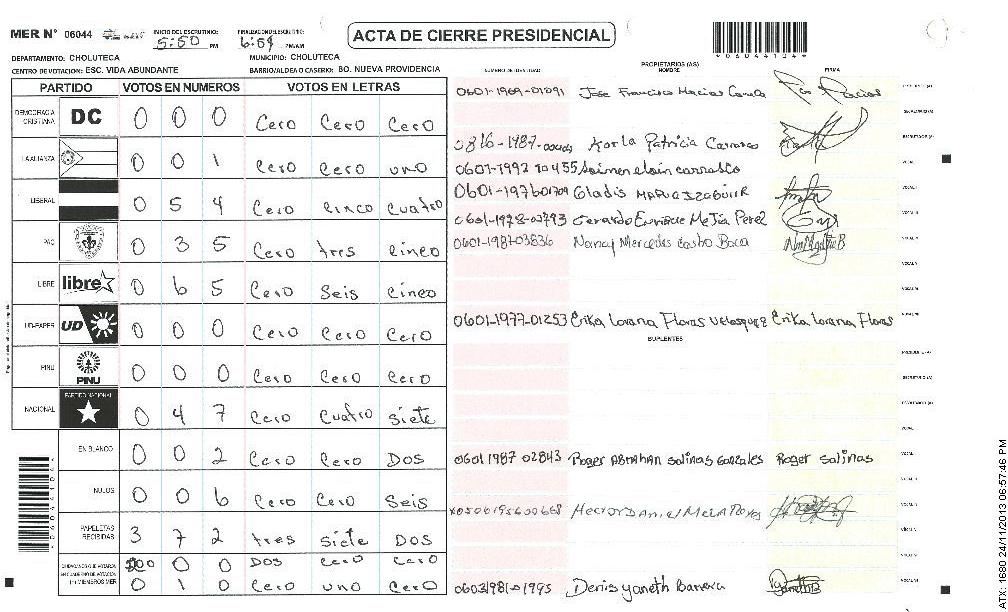 MER N° 06044
INICIO DEL ESCRUTINIO: 5:50 PM
FINALIZACION DEL ESCRUTINIO: 6:09 PM/AM
ACTA DE CIERRE PRESIDENCIAL
DEPARTAMENTO: CHOLUTECA
MUNICIPIO: CHOLUTECA
CENTRO DE VOTACION: ESC. VIDA ABUNDANTE
BARRIO/ALDEA O CASERIO: BO. NUEVA PROVIDENCIA
PARTIDO VOTOS EN NUMEROS VOTOS EN LETRAS
DEMOCRACIA CRISTIANA DC 0 0 0 Cero Cero Cero
LA ALIANZA 0 0 1 Cero Cero uno
LIBERAL 0 5 4 Cero Cinco Cuatro
PAC 0 3 5 Cero tres Cinco
LIBRE libre 0 6 5 Cero Seis Cinco
UD-FAPER UD 0 0 0 Cero Cero Cero
PINU PINU 0 0 0 Cero Cero Cero
NACIONAL PARTIDO NACIONAL 0 4 7 Cero Cuatro Siete
EN BLANCO 0 0 2 Cero Cero DOS
NULOS 0 0 6 Cero Cero Seis
PAPELETAS RECIBIDAS 3 7 2 tres siete DOS
CIUDADANOS QUE VOTARON EN CUADERNO DE VOTACION 0 0 DOS Cero Cero
MIEMBROS MER 0 1 0 Cero uno Cero
NUMERO DE IDENTIDAD
PROPIETARIOS (AS)
NOMBRE
FIRMA
0601-1969-01091 Jose Francisco Macias
0816-1987- Karla Patricia Carrasco
0601-1992
0601-1976-01709 Gladis
0601-1978-02793 Gerardo Enrique Mejia Perez
0601-1987-03836 Nancy Mercedes Castro Baca
0601-1977-01253 Erika Lorana Floras Velasquez Erika Lorana Floras
SUPLENTES
0601 1987 02843 Roger ABRAHAN Salinas Gonzales Roger Salinas
Hector Daniel
Denis Yaneth Barrera
ATX: 1680 24/11/2013 06:57:46 PM